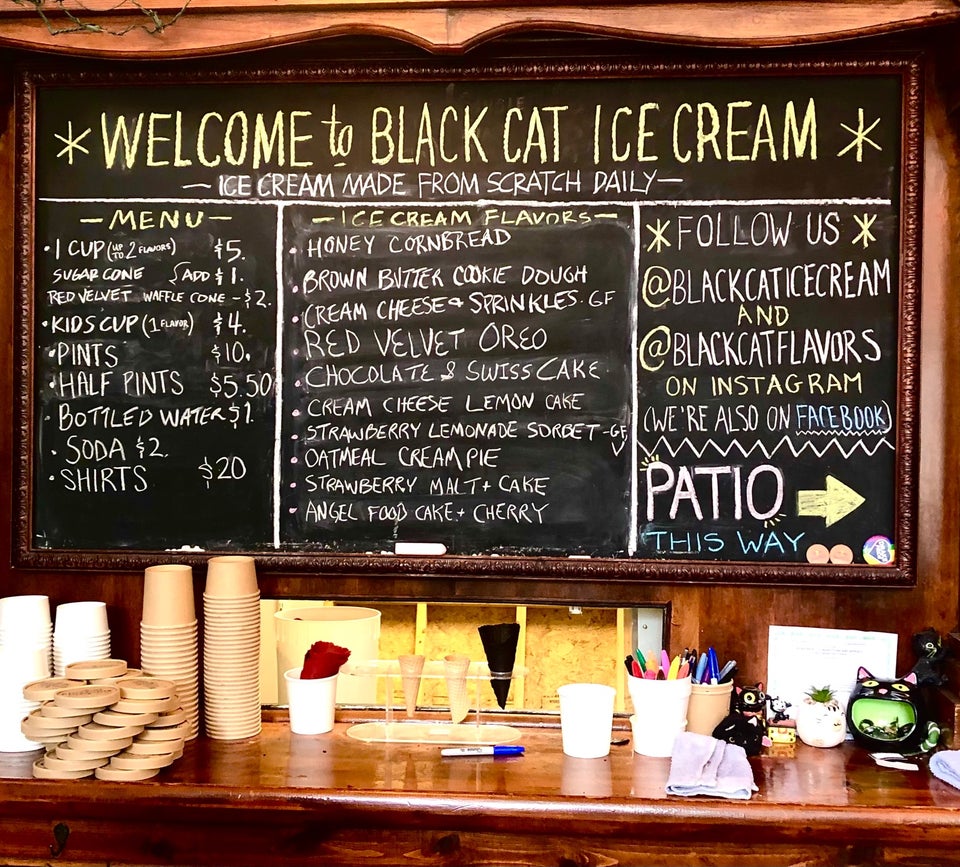 * WELCOME to BLACK CAT ICE CREAM *
— ICE CREAM MADE FROM SCRATCH DAILY —
— MENU —
• 1 CUP (UP TO 2 FLAVORS) $5.
SUGAR CONE { ADD $1.
RED VELVET WAFFLE CONE - $2.
• KIDS CUP (1 FLAVOR) $4.
• PINTS $10.
• HALF PINTS $5.50
• BOTTLED WATER $1.
• SODA $2.
• SHIRTS $20
— ICE CREAM FLAVORS —
• HONEY CORNBREAD
• BROWN BUTTER COOKIE DOUGH
• CREAM CHEESE + SPRINKLES - GF
• RED VELVET OREO
• CHOCOLATE & SWISS CAKE
• CREAM CHEESE LEMON CAKE
• STRAWBERRY LEMONADE SORBET - GF, V
• OATMEAL CREAM PIE
• STRAWBERRY MALT + CAKE
• ANGEL FOOD CAKE + CHERRY
* FOLLOW US *
@BLACKCATICECREAM
AND
@BLACKCATFLAVORS
ON INSTAGRAM
(WE'RE ALSO ON FACEBOOK)
PATIO
THIS WAY